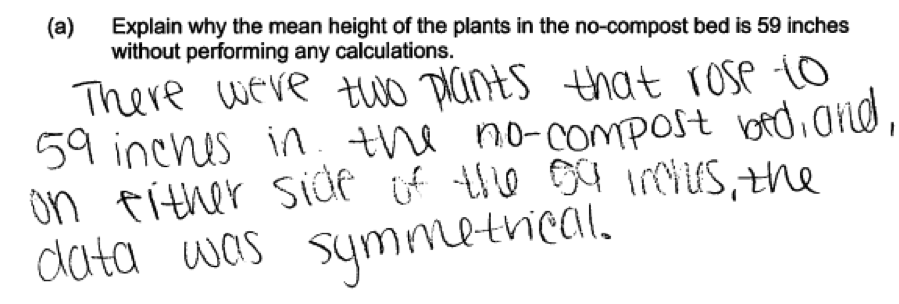 (a) Explain why the mean height of the plants in the no-compost bed is 59 inches
without performing any calculations.
There were two plants that rose to
59 inches in the no-compost bed, and,
on either side of the 59 inches, the
data was symmetrical.